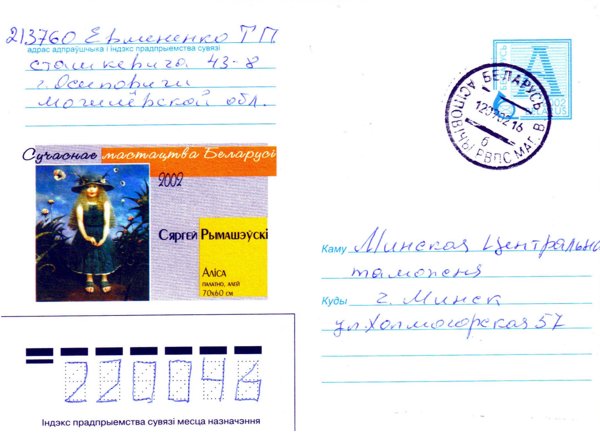 213760 Ермененко Т П
адрас адпраўшчыка і індэкс прадпрыемства сувязі
сташкевича 43-8
г. Осиповичи
Могилёвской обл.
Сучаснае мастацтва Беларусі
2002
Сяргей Рымашэўскі
Аліса
палатно, алей
70х60 см
А
БЕЛАРУСЬ
АСІПОВІЧЫ РВПС МАГ. В
16
б
Каму Минская Центральна
таможня
Куды г. Минск
ул. Холмогорская 57
220046
Індэкс прадпрыемства сувязі месца назначэння